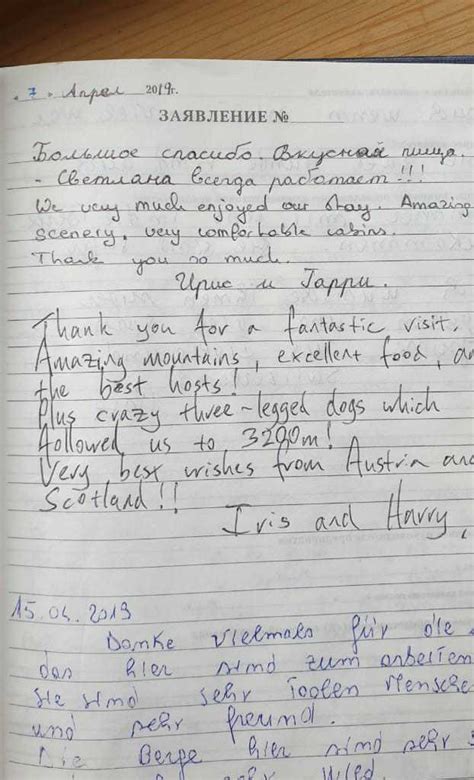 7. Апрел 2019г.
ЗАЯВЛЕНИЕ №
Большое спасибо. Вкусная пища.
- Светлана всегда работает!!!
We very much enjoyed our stay. Amazing
scenery, very comfortable cabins.
Thank you so much.
Ирис и Гарри.
Thank you for a fantastic visit.
Amazing mountains, excellent food, an
the best hosts!
Plus crazy three-legged dogs which
followed us to 3200m!
Very best wishes from Austria and
Scotland!!
Iris and Harry,
15.04.2019
Danke vielmals für die
das hier sind zum arbeiten
Sie sind sehr Toolen Mensche
und sehr freund.
Die Berge hier sind sehr
sehr Wild.